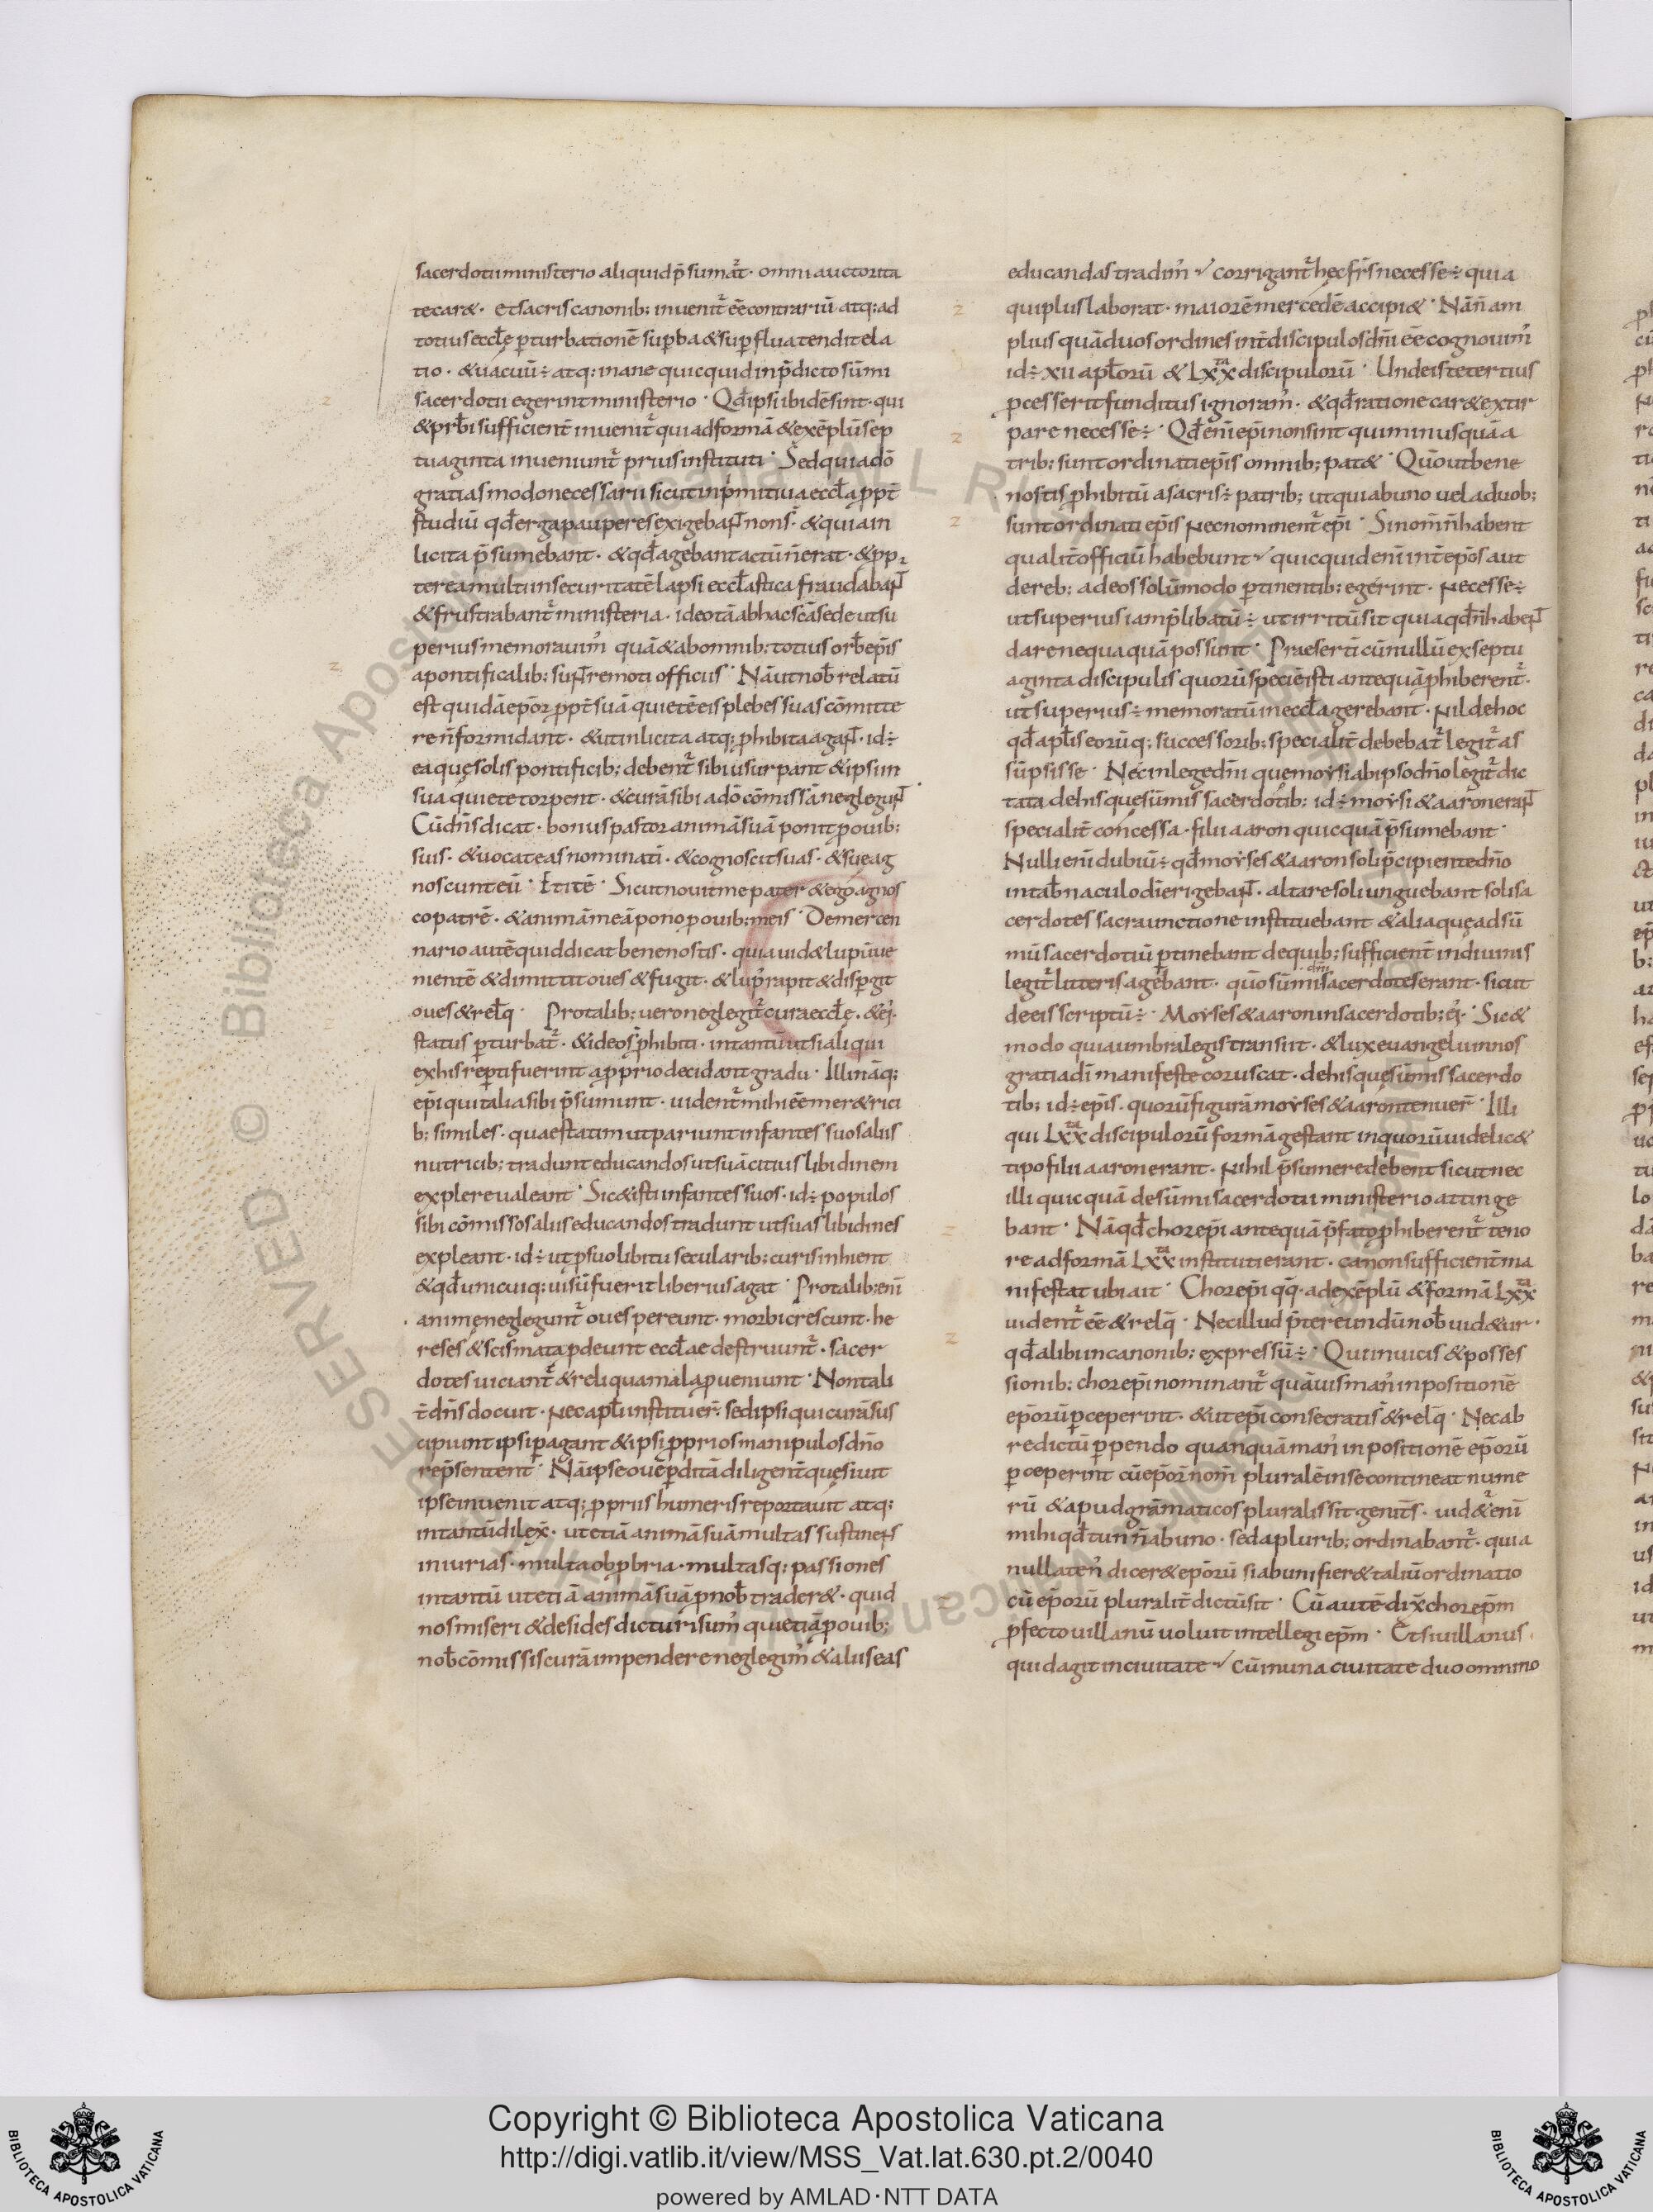 sacerdotii ministerio aliquid p̄sumat᷒· omni auctorita
te caret· Et sacris canonib; invenit᷒ ēē contrariū atq; ad
totius eccłę ꝑturbationē suꝑba & suꝑflua tendit ela
tio· & uacuū ÷ atq; inane quicquid in p̄dicto sūmi
sacerdotii egerint ministerio· Qđ ipsi ibidē sint· qui
& prb̄i sufficient̄ invenit᷒ qui ad formā & exēplū sep
tuaginta inveniunt᷒ prius instituti· Sed quia dō
gratias modo necessarii sicut in pͥmitiua eccła ꝓpt̄
studiū qđ erga pauperes exigebaɴ᷒t non s̄· & quia in
licita p̄sumebant· & qđ agebant actū ñ erat· & ꝓp
terea multi in securitatē lapsi eccłastica fraudabaɴ᷒t
& frustrabant᷒ ministeria· ideo tā ab hac scā sede ut su
perius memorauim᾽ quā & ab omnib; totius orb̄ ep̄is
a pontificalib; suɴ᷒t remoti officiis· Nā ut nob̄ relatū
est quidā ep̄or̄ ꝓpt̄ suā quietē eis plebes suas cōmitte
re ñ formidant· & ut inlicita atq; ꝓhibita agaɴ᷒t· id ÷
ea quę solis pontificib; debent᷒ sibi usurpant & ipsi in
sua quiete torpent· & curā sibi a dō cōmissā negleguɴ᷒t·
Cū dñs dicat· bonus pastor animā suā ponit ꝓ ouib;
suis· & uocat eas nominati· & cognoscit suas· & suę ag
noscunt eū· Et itē· Sicut nouit me pater & ego agnos
co patrē· & animā meā pono ꝓ ouib; meis· De mercen
nario autē quid dicat bene nostis· quia uidet lupū ue
nientē & dimittit oues & fugit· & lup᾽ rapit & disꝑgit
oues & rel̄q· Pro talib; ueroneglegit᷒ cura eccłę· & ej᾽
status ꝑturbat᷒· & ideo s̄ ꝓhibiti· in tantū ut si aliqui
ex his reꝑti fuerint a ꝓprio decidant gradu· Illi nāq;
ep̄i qui talia sibi p̄sumunt· uident᷒ mihi ēē meretrici
b; similes· quae statim ut pariunt infantes suos aliis
nutricib; tradunt educandos ut suā citius libidinem
explere ualeant· Sic & isti infantes suos· id ÷ populos
sibi cōmissos aliis educandos tradunt ut suas libidines
expleant· id ÷ ut ꝓ suo libitu secularib; curis inhient
& qđ unicuiq; uisū fuerit liberius agat· Pro talib; enī
animę neglegunt᷒ oues pereunt· morbi crescunt· he
reses & scismata ꝓdeunt eccłae destruunt᷒· sacer
dotes uiciant᷒ & reliqua mala ꝓueniunt· Non tali
t̄ dñs docuit· Nec apłi instituer̄· sed ipsi qui curā sus
cipiunt ipsi ꝑagant & ipsi ꝓprios manipulos dño
rep̄sentent· Nā ipse ouē ꝑditā diligent̄ quęsiuit
ipse inuenit atq; ꝓpriis humeris reportauit atq;
in tantū dilex̄· ut etiā animā suā multas sustineɴs
iniurias· multa obꝓbria· multasq; passiones
in tantū ut etiā animā suā ꝓ nob̄ traderet· quid
nos miseri & desides dicturi sum᾽ qui etiā ꝓ ouib;
nob̄ cōmissis curā impendere neglegim᾽ & aliis eas
educandas tradim᾽ corrigant᷒ hęc fr̄s necesse ÷ quia
qui plus laborat· maiorē mercedē accipiet· Nā ñ am
plius quā duos ordines int̄ discipulos dñi ēē cognouim᾽
id ÷ xii apłorū & Lxxta discipulorū· Unde iste tertius
ꝓcesserit funditus ignoram᾽· & qđ ratione caret extir
pare necesse ÷· Qđ enī ep̄i non sint qui minus quā a
trib; sunt ordinati ep̄is omnib; patet· Qūo ut bene
nostis ꝓhibitū a sacris ÷ patrib; ut qui ab uno uel a duob;
sunt ordinati ep̄is Nec nominent᷒ ep̄i· Si nom̄ ñ habent
qualit̄ officiū habebunt quicquid enī int̄ ep̄os aut
de reb; ad eos solūmodo ꝑtinentib; egerint· Necesse ÷
ut superius iam p̄libatū ÷ ut irritū sit quia qđ ñ habeɴ᷒t
dare nequaquā possunt· Praesertī cū nullū ex septu
aginta discipulis quorū speciē isti antequā ꝓhiberent᷒·
ut superius ÷ memoratū in eccła gerebant· Nil de hoc
qđ apłis eorūq; successorib; specialit̄ debebat᷒ legit᷒ as
sūpsisse· Nec in lege dñi que moysi ab ipso dño legit᷒ dic
tata de his que sūmis sacerdotib; id ÷ moysi & aaron eraɴ᷒t
specialit̄ concessa· filii aaron quicquā p̄sumebant·
Nulli enī dubiū ÷ qđ moyses & aaron soli p̄cipiente dño
in tab̄naculo dī erigebaɴ᷒t· altare soli unguebant soli sa
cerdotes sacra unctione instituebant & alia quę ad sū
mū sacerdotiū ꝑtinebant de quib; sufficient̄ in diuinis
legit᷒ litteris agebant· qūo sūmi dñi sacerdotes erant· sicut
de eis scriptū ÷· Moyses & aaron in sacerdotib; ej᾽· Sic &
modo quia umbra legis transiit· & lux euangelii in nos
gratia dī manifeste coruscat· de his quę sūmis sacerdo
tib; id ÷ ep̄is· quorū figurā moyses & aaron tenuer̄· Illi
qui Lxxta discipulorū formā gestant in quorū uidelicet
tipo filii aaron erant· Nihil p̄sumere debent sicut nec
illi quicquā de sūmi sacerdotii ministerio attinge
bant· Nāqđ chorep̄i antequā p̄fato ꝓhiberent᷒ teno
re ad formā Lxxta instituti erant· canon sufficient̄ ma
nifestat ubi ait· Chorep̄i qq̄· ad exēplū & formā Lxxta
uident᷒ ēē & relq̄· Nec illud p̄tereundū nob̄ uidetur·
qđ alibi in canonib; expressū ÷· Qui in uicis & posses
sionib; chorep̄i nominant᷒ quāuis man᾽ inpositionē
ep̄orū ꝑceperint· & ut ep̄i consecrati s̄ & relq̄· Nec ab
re dictū ꝑpendo quanquā man᾽ inpositionē ep̄orū
ꝑceperint cū ep̄or̄ nom̄ pluralē in se contineat nume
rū & apud grāmaticos pluralis sit genit̄s· uidet᷒ enī
mihi qđ tunc ñ ab uno· sed a plurib; ordinabant᷒· quia
nullaten᾽ diceret ep̄orū si ab uni fieret taliū ordinatio
cū ep̄orū pluralit̄ dictū sit· Cū autē dix̄ chorep̄m
ꝓfecto uillanū uoluit intellegi ep̄m· Et si uillanus·
quid agit in ciuitate cū in una ciuitate duo omnino
Copyright © Biblioteca Apostolica Vaticana
http://digi.vatlib.it/view/MSS_Vat.lat.630.pt.2/0040
powered by AMLAD·NTT DATA
BIBLIOTECA APOSTOLICA VATICANA
BIBLIOTECA APOSTOLICA VATICANA